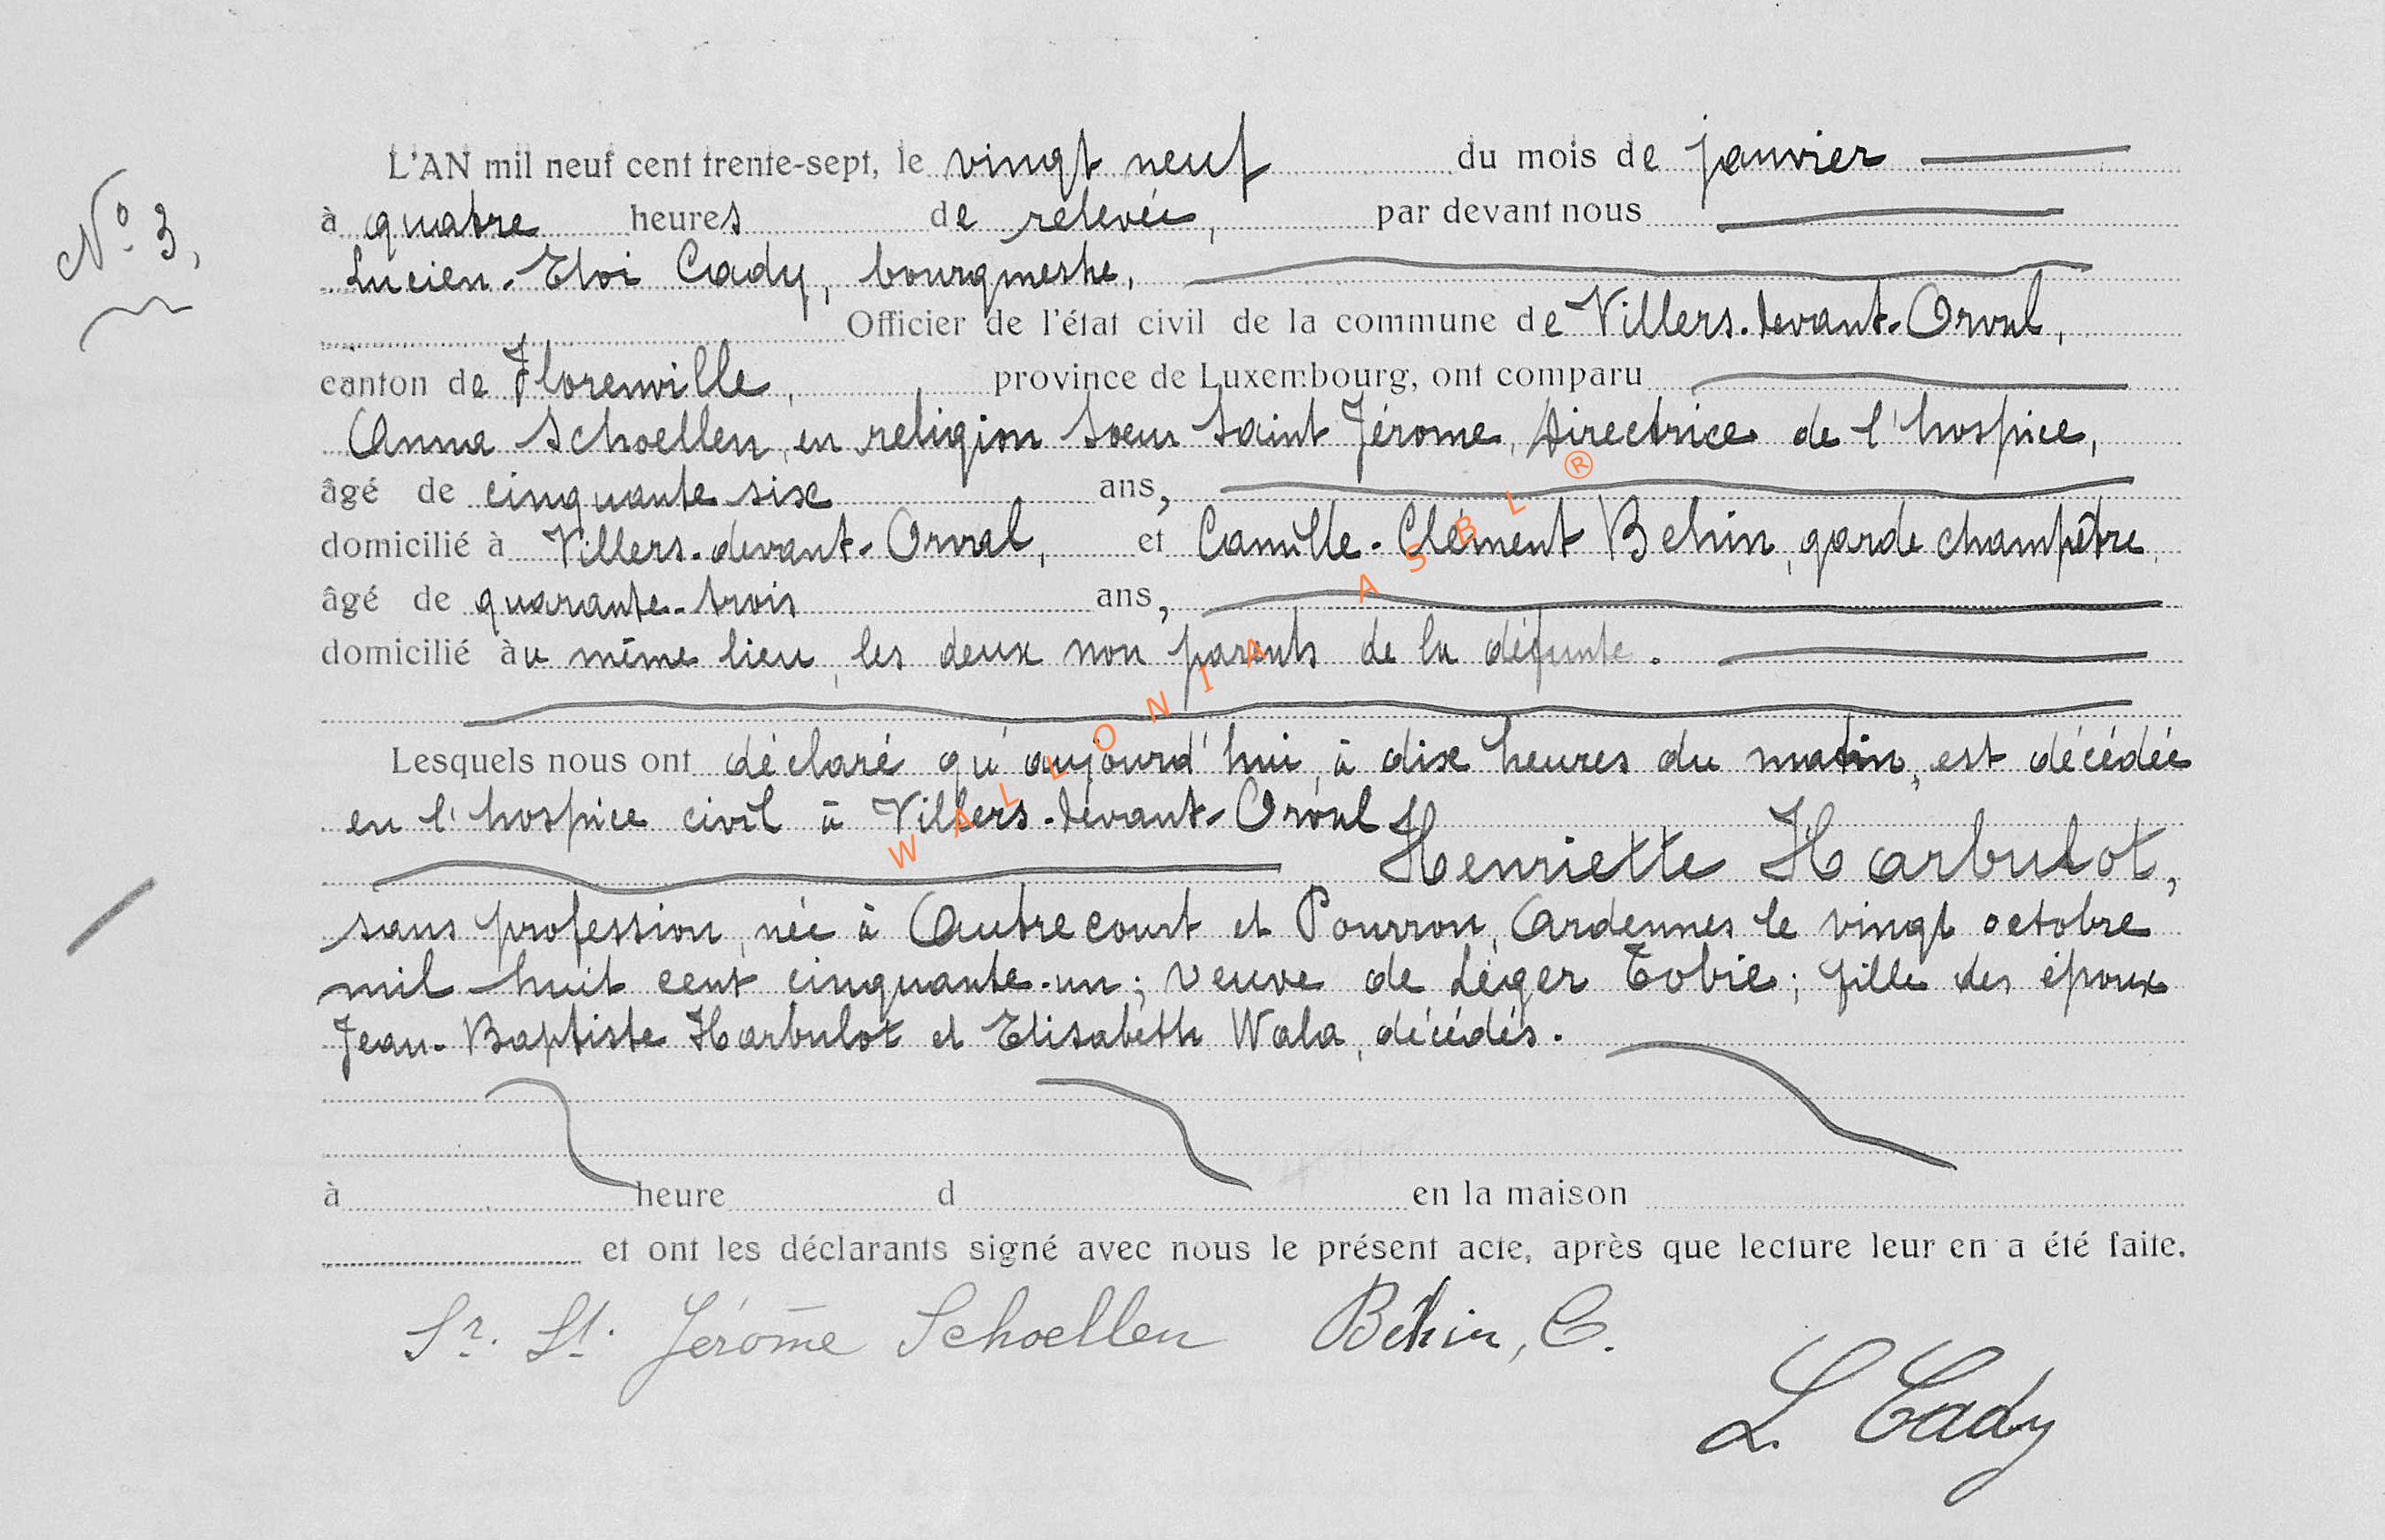 L'AN mil neuf cent trente-sept, le vingt neuf du mois de janvier
N° 3,
à quatre heures de relevée, par devant nous
Lucien-Eloi Cady, bourgmestre,
Officier de l'état civil de la commune de Villers-devant-Orval,
canton de Florenville, province de Luxembourg, ont comparu
Anna Schoellen, en religion soeur Saint Jérome, Directrice de l'hospice,
âgé de cinquante six ans,
domicilié à Villers-devant-Orval, et Camille-Clément Behin, garde champêtre,
âgé de quarante-trois ans,
domicilié àu même lieu, les deux non parents de la défunte.
Lesquels nous ont déclaré qu'aujourd'hui, à dix heures du matin, est décédée
en l'hospice civil à Villers-devant-Orval
Henriette Harbulot,
sans profession, née à Autrecourt et Pourron, Ardennes le vingt octobre
mil huit cent cinquante-un; veuve de Léger Tobie; fille des époux
Jean-Baptiste Harbulot et Elisabeth Wala, décédés.
à heure d en la maison
et ont les déclarants signé avec nous le présent acte, après que lecture leur en a été faite.
Sr. St. Jérôme Schoellen Behin, C.
L. Cady
WALLONIA ASBL ®